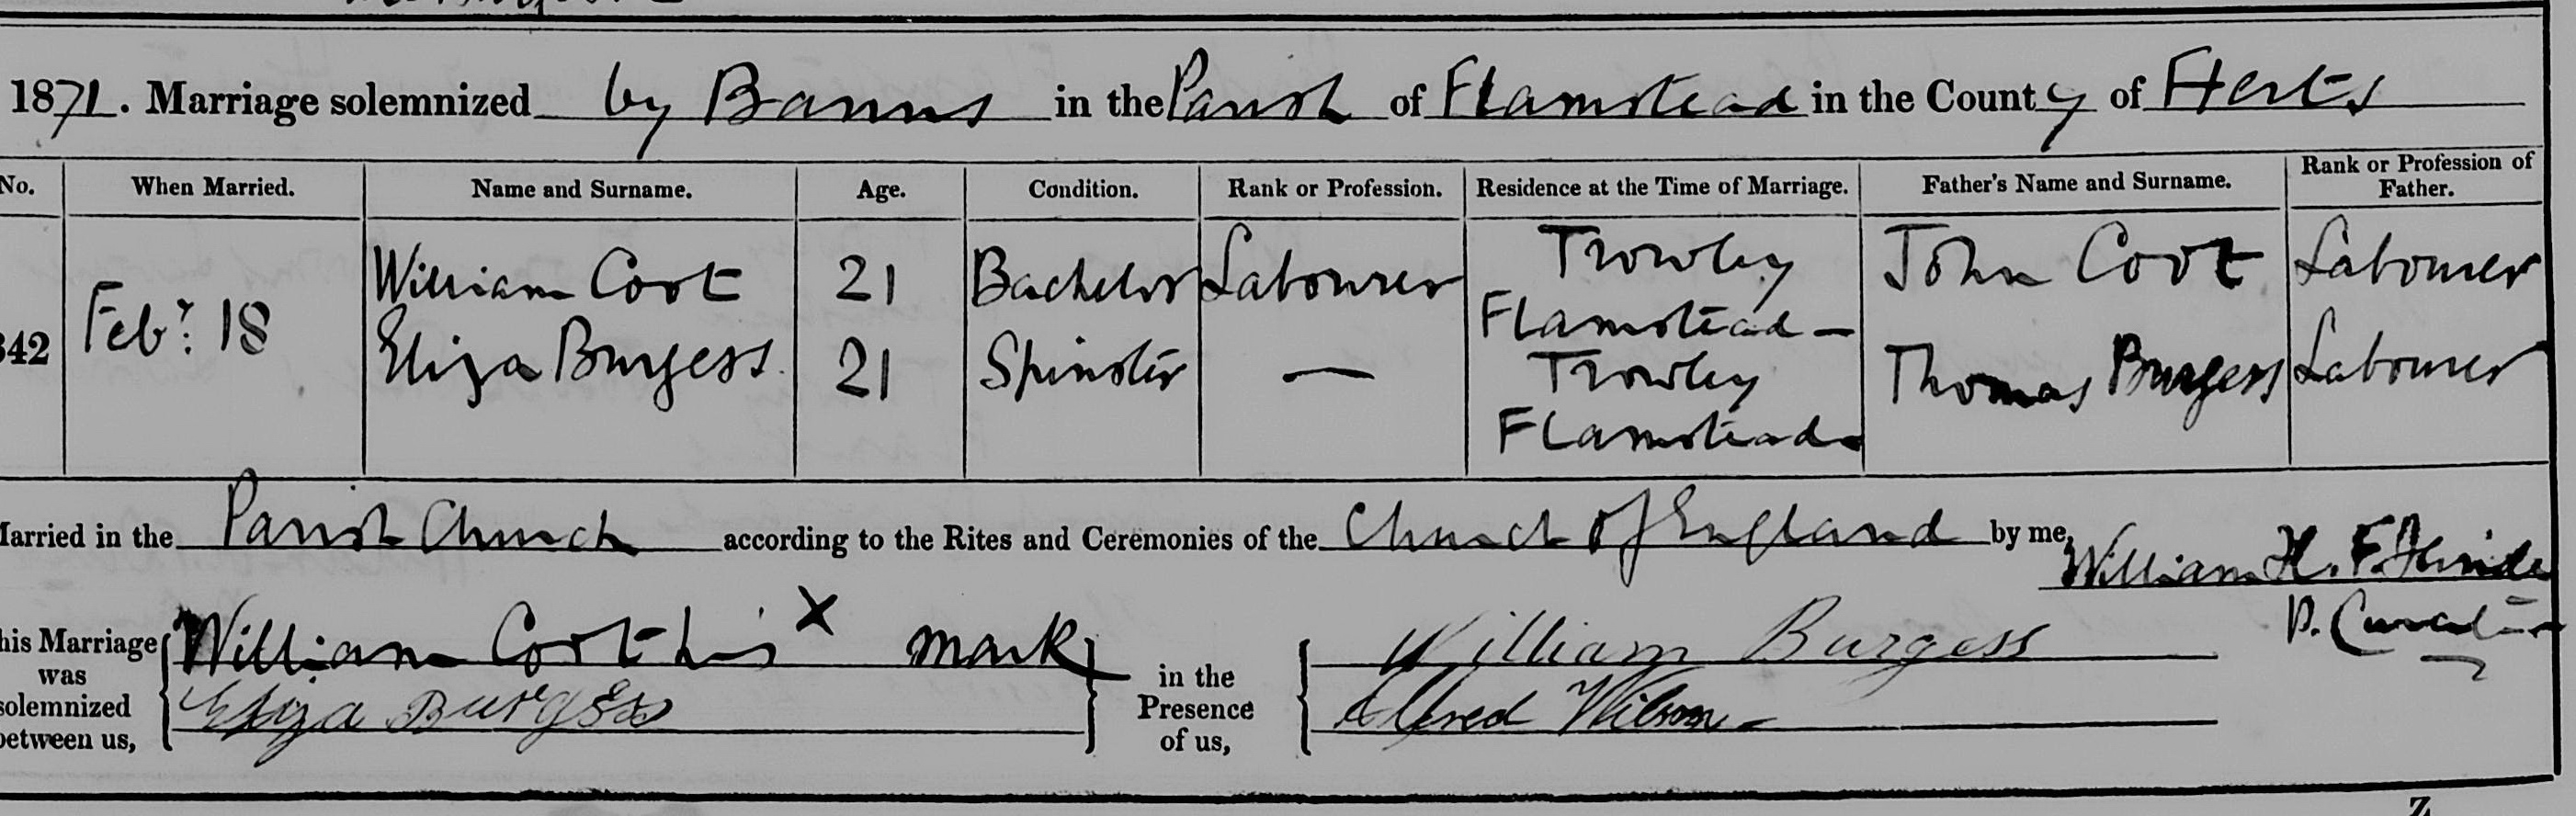 1871. Marriage solemnized by Banns in the Parish of Flamstead in the County of Herts
No. When Married. Name and Surname. Age. Condition. Rank or Profession. Residence at the Time of Marriage. Father's Name and Surname. Rank or Profession of Father.
342 Feby. 18 William Coot 21 Bachelor Labourer Trowley Flamstead – John Coot Labourer
Eliza Burgess. 21 Spinster — Trowley Flamstead Thomas Burgess Labourer
Married in the Parish Church according to the Rites and Ceremonies of the Church of England by me, William H. F. Hinde
P. Curate
This Marriage was solemnized between us, William Coot his X mark
Eliza Burgess
in the Presence of us, William Burgess
Alfred Wilson
Z